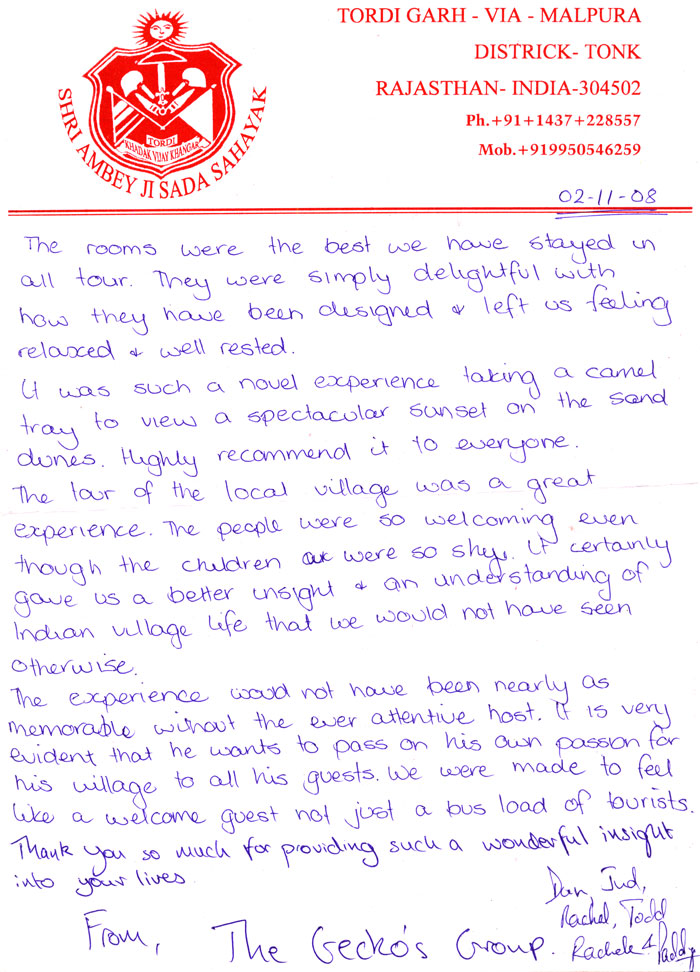 TORDI GARH - VIA - MALPURA
DISTRICK- TONK
RAJASTHAN- INDIA-304502
Ph.+91+1437+228557
Mob.+919950546259
TORDI
KHADAK VIJAY KHANGAR
SHRI AMBEY JI SADA SAHAYAK
02-11-08
The rooms were the best we have stayed in
all tour. They were simply delightful with
how they have been designed & left us feeling
relaxed & well rested.
It was such a novel experience taking a camel
tray to view a spectacular sunset on the sand
dunes. Highly recommend it to everyone.
The tour of the local village was a great
experience. The people were so welcoming even
though the children were so shy. It certainly
gave us a better insight & an understanding of
Indian village life that we would not have seen
otherwise.
The experience would not have been nearly as
memorable without the ever attentive host. It is very
evident that he wants to pass on his own passion for
his village to all his guests. We were made to feel
like a welcome guest not just a bus load of tourists.
Thank you so much for providing such a wonderful insight
into your lives
Dan, Jud,
Rachel, Todd
From, The Gecko's Group. Rachele & Paddy